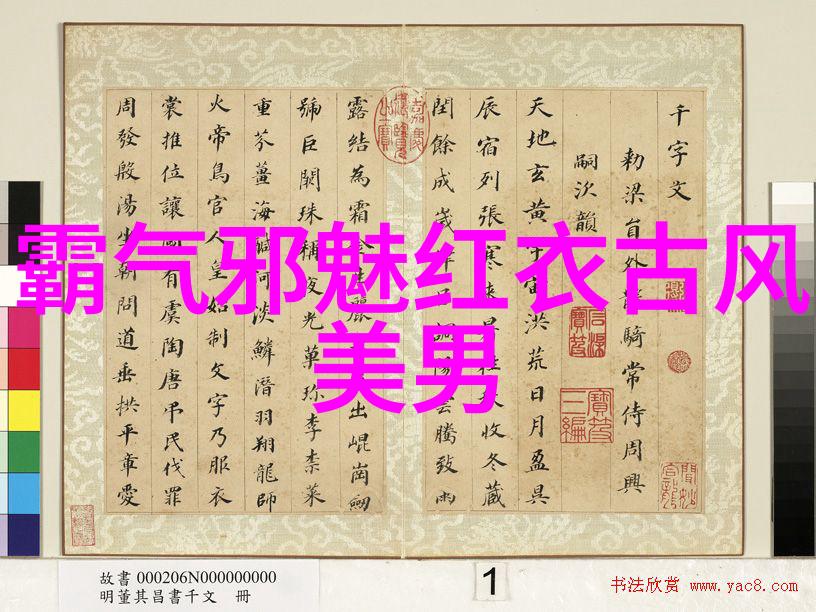 霸气邪魅红衣古风
美男
千字文
勅梁員外散騎常侍周興
嗣次韻
天地玄黃宇宙洪荒日月盈昃
辰宿列張寒來暑往秋收冬藏
閏餘成歲律呂調陽雲騰致雨
露結為霜金生麗出崐崗劒
號巨闕珠稱夜光菓珍李柰菜
重芥薑海鹹河淡鱗潛羽翔龍師
火帝鳥官人皇始制文字乃服衣
裳推位讓國有虞陶唐弔民伐罪
周發殷湯坐朝問道垂拱平章愛
故書 000206N000000000
明董其昌書千文 冊
1
书法欣赏 www.yac8.com